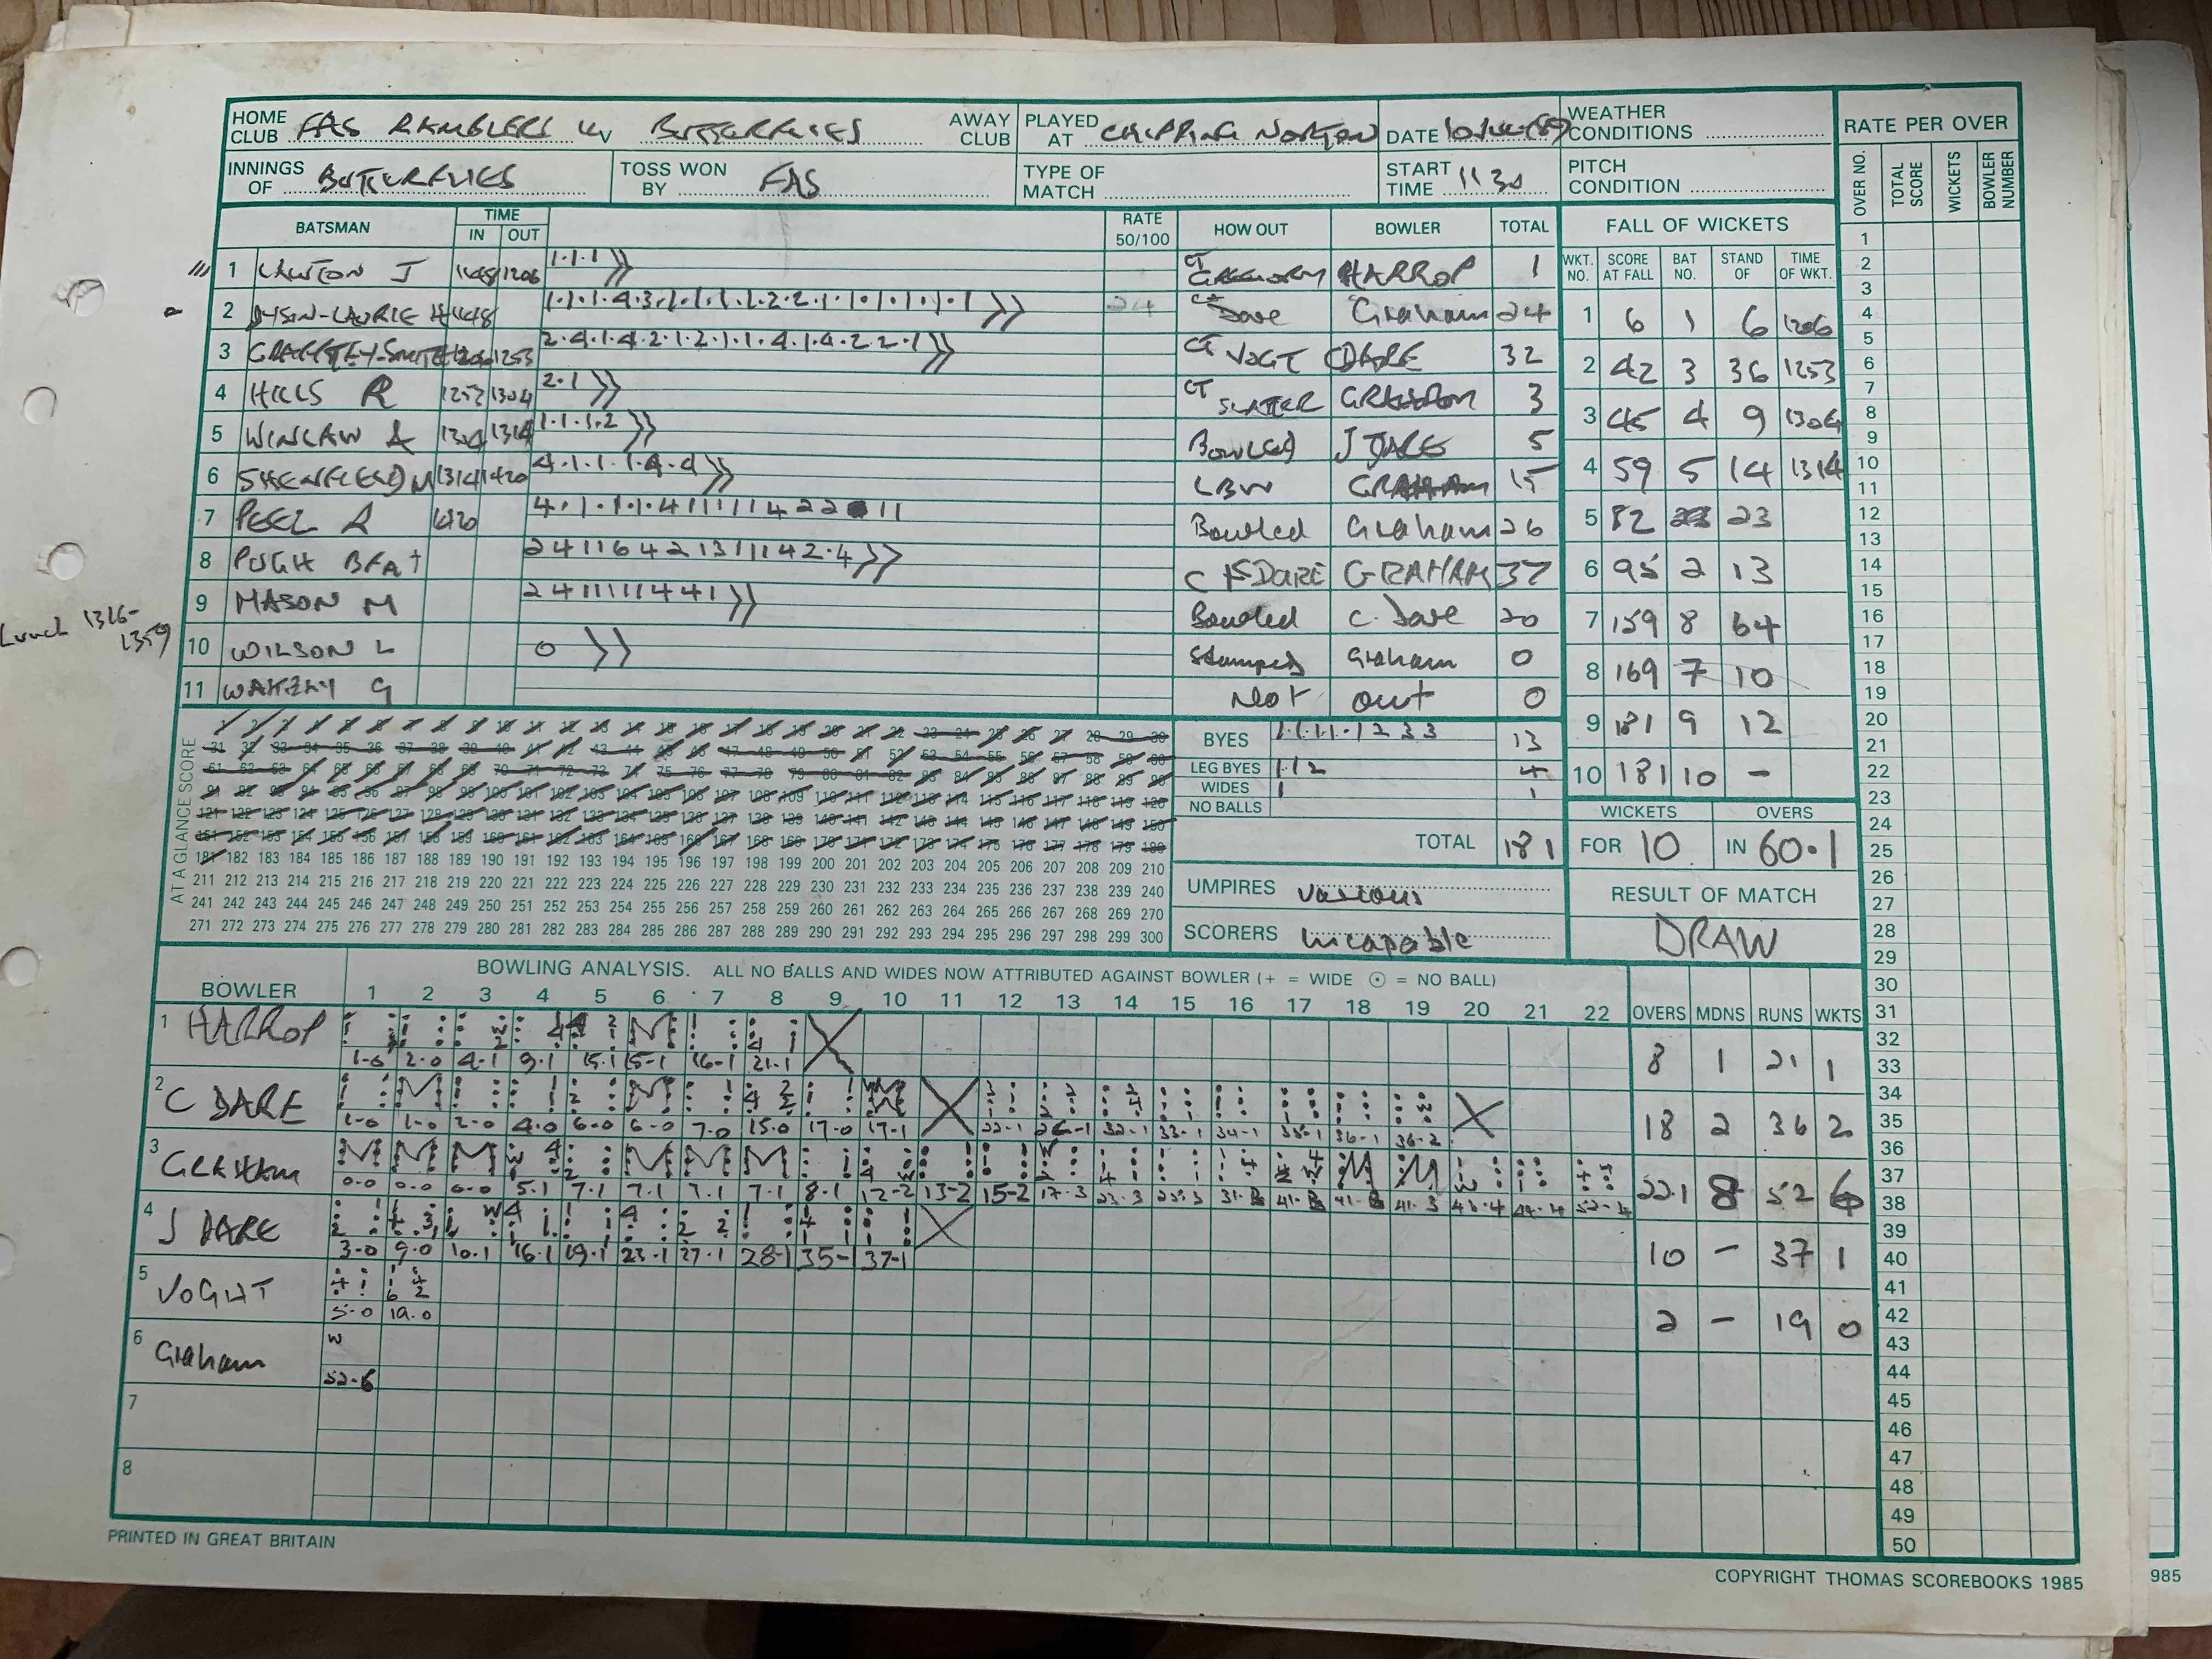 HOME CLUB FAS RAMBLERS v BUTTERFLIES AWAY CLUB PLAYED AT CHIPPING NORTON DATE WEATHER CONDITIONS RATE PER OVER
INNINGS OF BUTTERFLIES TOSS WON BY FAS TYPE OF MATCH START TIME 1130 PITCH CONDITION
OVER NO. TOTAL SCORE WICKETS BOWLER NUMBER
BATSMAN TIME IN OUT RATE 50/100 HOW OUT BOWLER TOTAL
1 LAWTON J 1148 1206 1.1.1 CT GREGORY HARROP 1
2 DYSON-LAURIE H 1148 1.1.1.4.3.1.1.1.1.2.2.1.1.1.1.1.1.1 24 CT Dare Graham 24
3 1206 1253 2.4.1.4.2.1.2.1.1.4.1.4.2.2.1 CT VOGT DARE 32
4 HILLS R 1253 1304 2.1 CT SLATTER GRAHAM 3
5 WINLAW A 1304 1314 1.1.1.2 Bowled J DARE 5
6 SHENFIELD M 1314 1420 4.1.1.1.4.4 LBW GRAHAM 15
7 PEEL A 1420 4.1.1.1.4 1 1 1 1 1 4 2 2 1 1 Bowled Graham 26
8 PUGH BFA † 2 4 1 1 6 4 2 1 3 1 1 1 4 2.4 C DARE GRAHAM 37
9 MASON M 2 4 1 1 1 1 1 4 4 1 Bowled C. Dare 20
10 WILSON L 0 Stumped Graham 0
11 WAKELY G Not out 0
Lunch 1316-
1359
FALL OF WICKETS
WKT. NO. SCORE AT FALL BAT NO. STAND OF TIME OF WKT.
1 6 1 6 1206
2 42 3 36 1253
3 45 4 9 1304
4 59 5 14 1314
5 82 23
6 95 2 13
7 159 8 64
8 169 7 10
9 181 9 12
10 181 10 -
AT A GLANCE SCORE
1 2 3 4 5 6 7 8 9 10 11 12 13 14 15 16 17 18 19 20 21 22 23 24 25 26 27 28 29 30
31 32 33 34 35 36 37 38 39 40 41 42 43 44 45 46 47 48 49 50 51 52 53 54 55 56 57 58 59 60
61 62 63 64 65 66 67 68 69 70 71 72 73 74 75 76 77 78 79 80 81 82 83 84 85 86 87 88 89 90
91 92 93 94 95 96 97 98 99 100 101 102 103 104 105 106 107 108 109 110 111 112 113 114 115 116 117 118 119 120
121 122 123 124 125 126 127 128 129 130 131 132 133 134 135 136 137 138 139 140 141 142 143 144 145 146 147 148 149 150
151 152 153 154 155 156 157 158 159 160 161 162 163 164 165 166 167 168 169 170 171 172 173 174 175 176 177 178 179 180
181 182 183 184 185 186 187 188 189 190 191 192 193 194 195 196 197 198 199 200 201 202 203 204 205 206 207 208 209 210
211 212 213 214 215 216 217 218 219 220 221 222 223 224 225 226 227 228 229 230 231 232 233 234 235 236 237 238 239 240
241 242 243 244 245 246 247 248 249 250 251 252 253 254 255 256 257 258 259 260 261 262 263 264 265 266 267 268 269 270
271 272 273 274 275 276 277 278 279 280 281 282 283 284 285 286 287 288 289 290 291 292 293 294 295 296 297 298 299 300
BYES 1.1.1.1.1 2 3 3 13
LEG BYES 1 1 2 4
WIDES 1 1
NO BALLS
TOTAL 181
WICKETS OVERS
FOR 10 IN 60.1
UMPIRES various
SCORERS Incapable
RESULT OF MATCH
DRAW
BOWLING ANALYSIS. ALL NO BALLS AND WIDES NOW ATTRIBUTED AGAINST BOWLER (+ = WIDE ⊙ = NO BALL)
BOWLER 1 2 3 4 5 6 7 8 9 10 11 12 13 14 15 16 17 18 19 20 21 22 OVERS MDNS RUNS WKTS
1 HARROP 8 1 21 1
1-0 2-0 4-1 9-1 15-1 15-1 16-1 21-1
2 C DARE 18 2 36 2
1-0 1-0 2-0 4-0 6-0 6-0 7-0 15-0 17-0 17-1 22-1 26-1 32-1 33-1 34-1 35-1 36-1 36-2
3 GRAHAM 22.1 8 52 6
0-0 0-0 0-0 5-1 7-1 7-1 7-1 7-1 8-1 12-2 13-2 15-2 17-3 23-3 25-3 31-3 41-3 41-3 41-3 43-4 44-4 52-4
4 J DARE 10 - 37 1
3-0 9-0 10-1 16-1 19-1 23-1 27-1 28-1 35-1 37-1
5 VOGHT 2 - 19 0
5-0 19-0
6 Graham W
52-6
7
8
1
2
3
4
5
6
7
8
9
10
11
12
13
14
15
16
17
18
19
20
21
22
23
24
25
26
27
28
29
30
31
32
33
34
35
36
37
38
39
40
41
42
43
44
45
46
47
48
49
50
PRINTED IN GREAT BRITAIN
COPYRIGHT THOMAS SCOREBOOKS 1985
985